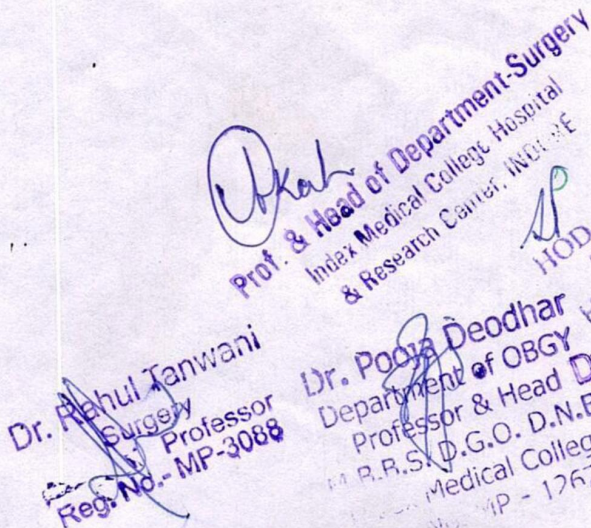 Prof. & Head of Department-Surgery
Index Medical College Hospital
& Research Center, INDORE
HOD
Dr. Rahul Tanwani
Surgery
Professor
Reg. No.- MP-3088
Dr. Pooja Deodhar
Department of OBGY
Professor & Head D
M.B.B.S. D.G.O. D.N.B
Medical Colleg
MP - 1267